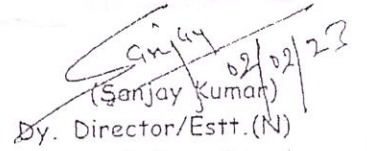 Sanjay
02/02/23
(Sanjay Kumar)
Dy. Director/Estt.(N)